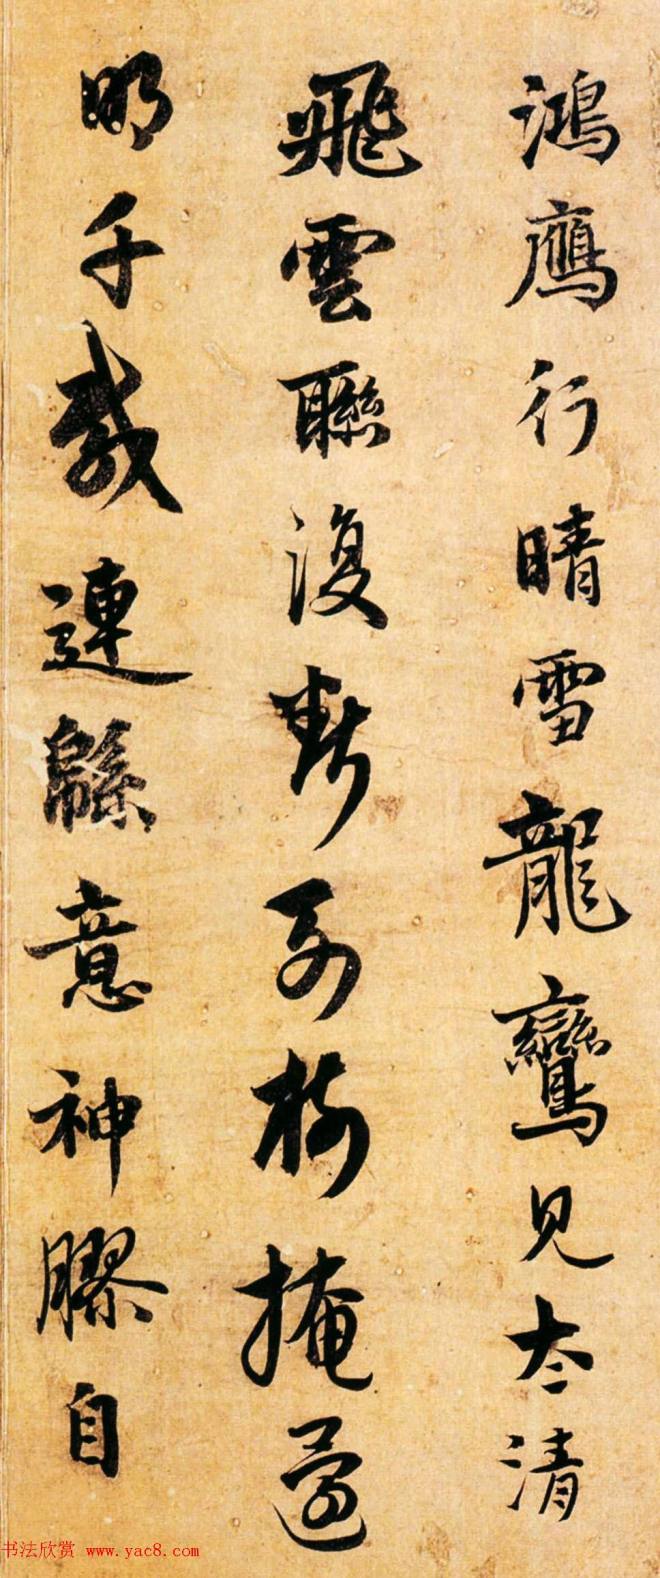 鴻鷹行晴雪龍鸞見太清
飛雲聯復斷樹掩還
明千載連緜意神膠自
书法欣赏 www.yac8.com